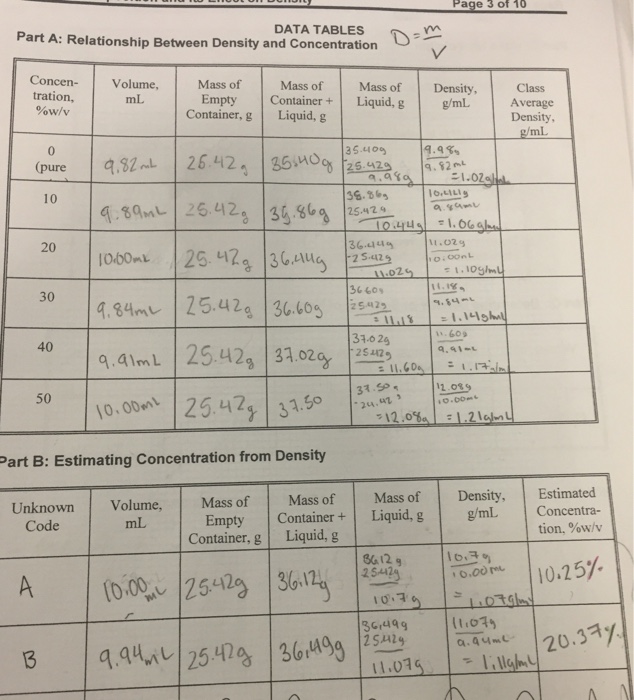 Page 3 of 10
DATA TABLES
Part A: Relationship Between Density and Concentration D = m/V
Concen-tration, %w/v Volume, mL Mass of Empty Container, g Mass of Container + Liquid, g Mass of Liquid, g Density, g/mL Class Average Density, g/mL
0 (pure 9.82mL 35.40g 35.40g 25.42g 9.98g 9.98g 9.82mL =1.02g/mL
10 9.89mL 25.42g 10.44g =1.06g/mL
20 10.00mL 25.42g 36.44g 36.44g -25.42g 11.02g 11.02g 10.00mL =1.10g/mL
30 9.84mL 25.42g 36.60g 36.60g 25.42g =11.18 11.18g 9.84mL =1.14g/mL
40 9.91mL 25.42g 37.02g 37.02g -25.42g =11.60g 11.60g 9.91mL =1.17g/mL
50 10.00mL 25.42g 37.50 37.50g =12.08g 12.08g 10.00mL =1.21g/mL
Part B: Estimating Concentration from Density
Unknown Code Volume, mL Mass of Empty Container, g Mass of Container + Liquid, g Mass of Liquid, g Density, g/mL Estimated Concentra-tion, %w/v
A 10.00mL 25.42g 36.12g 36.12g 25.42g 10.7g 10.7g 10.00mL =1.07g/mL 10.25%
B 9.94mL 25.42g 36.49g 36.49g 25.42g 11.07g 11.07g 9.94mL =1.11g/mL 20.37%